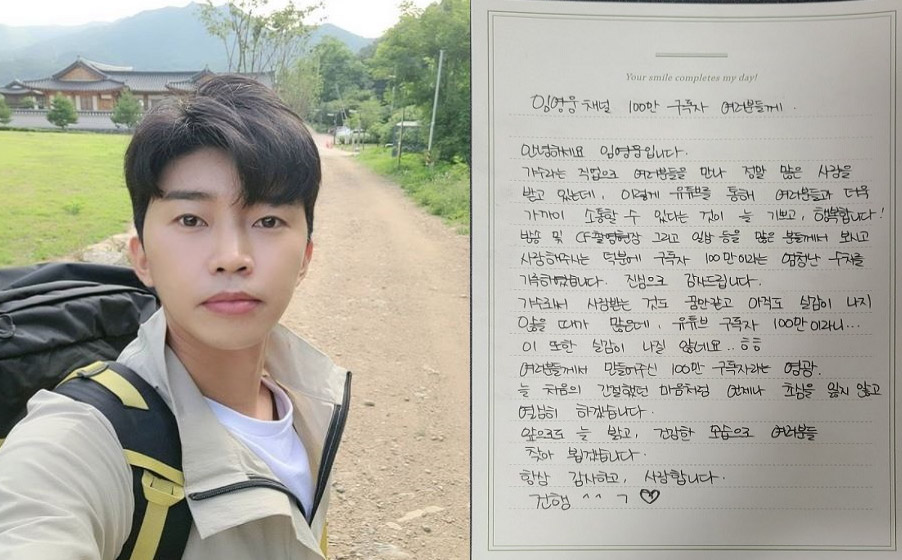 Your smile completes my day!
임영웅 채널 100만 구독자 여러분들께.
안녕하세요 임영웅입니다.
가수라는 직업으로 여러분들을 만나 정말 많은 사랑을
받고 있는데, 이렇게 유튜브를 통해 여러분들과 더욱
가까이 소통할 수 있다는 것이 늘 기쁘고, 행복합니다!
방송 및 CF촬영현장 그리고 일상 등을 많은 분들께서 보시고
사랑해주시는 덕분에 구독자 100만이라는 엄청난 수치를
기록하였습니다. 진심으로 감사드립니다.
가수로서 사랑받는 것도 꿈만같고 아직도 실감이 나지
않을 때가 많은데, 유튜브 구독자 100만이라니...
이 또한 실감이 나질 않네요..ㅎㅎ
여러분들께서 만들어주신 100만 구독자라는 영광.
늘 처음의 간절했던 마음처럼 언제나 초심을 잃지 않고
열심히 하겠습니다.
앞으로도 늘 밝고, 건강한 모습으로 여러분들
찾아 뵙겠습니다.
항상 감사하고, 사랑합니다.
건행 ^^ ㄱ ♡